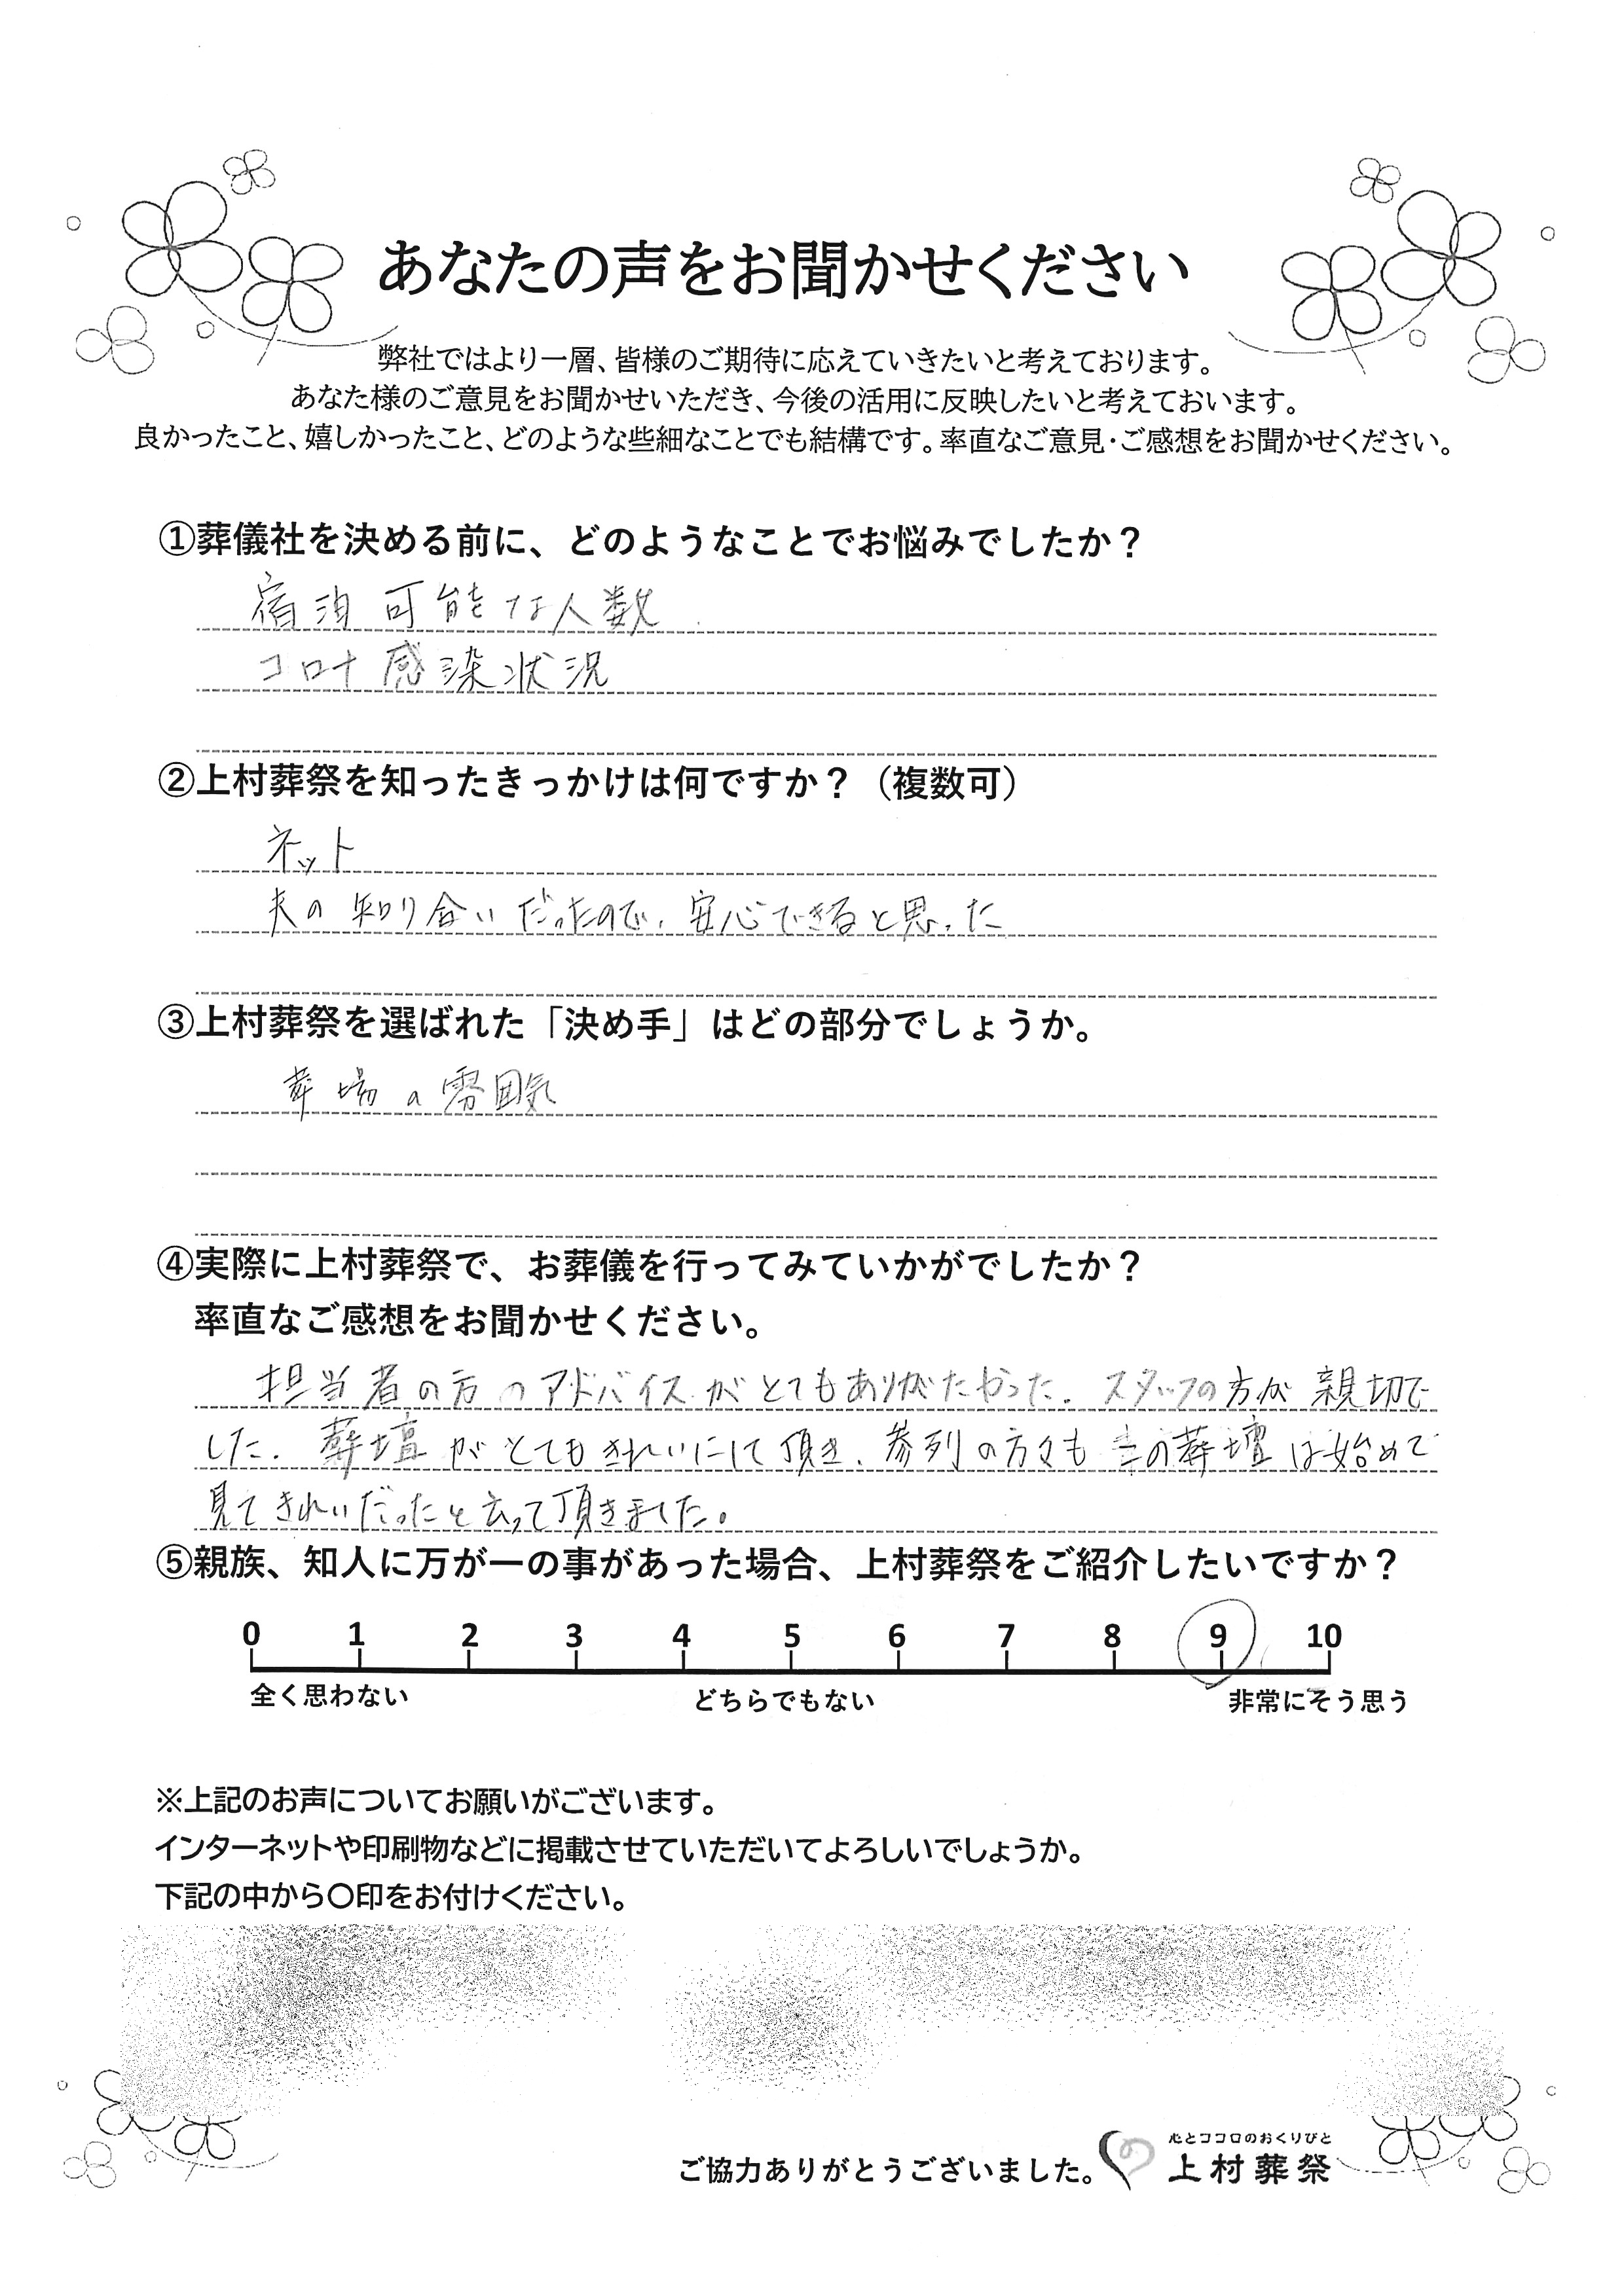 あなたの声をお聞かせください
弊社ではより一層、皆様のご期待に応えていきたいと考えております。
あなた様のご意見をお聞かせいただき、今後の活用に反映したいと考えておいます。
良かったこと、嬉しかったこと、どのような些細なことでも結構です。率直なご意見・ご感想をお聞かせください。
①葬儀社を決める前に、どのようなことでお悩みでしたか？
宿泊可能な人数
コロナ感染状況
②上村葬祭を知ったきっかけは何ですか？（複数可）
ネット
夫の知り合いだったので、安心できると思った
③上村葬祭を選ばれた「決め手」はどの部分でしょうか。
葬場の雰囲気
④実際に上村葬祭で、お葬儀を行ってみていかがでしたか？
率直なご感想をお聞かせください。
担当者の方のアドバイスがとてもありがたかった。スタッフの方が親切で
した。葬壇がとてもきれいにして頂き、参列の方々も の葬壇は始めて
見てきれいだったと云って頂きました。
⑤親族、知人に万が一の事があった場合、上村葬祭をご紹介したいですか？
0 1 2 3 4 5 6 7 8 9 10
全く思わない どちらでもない 非常にそう思う
※上記のお声についてお願いがございます。
インターネットや印刷物などに掲載させていただいてよろしいでしょうか。
下記の中から〇印をお付けください。
心とココロのおくりびと
ご協力ありがとうございました。 上村葬祭